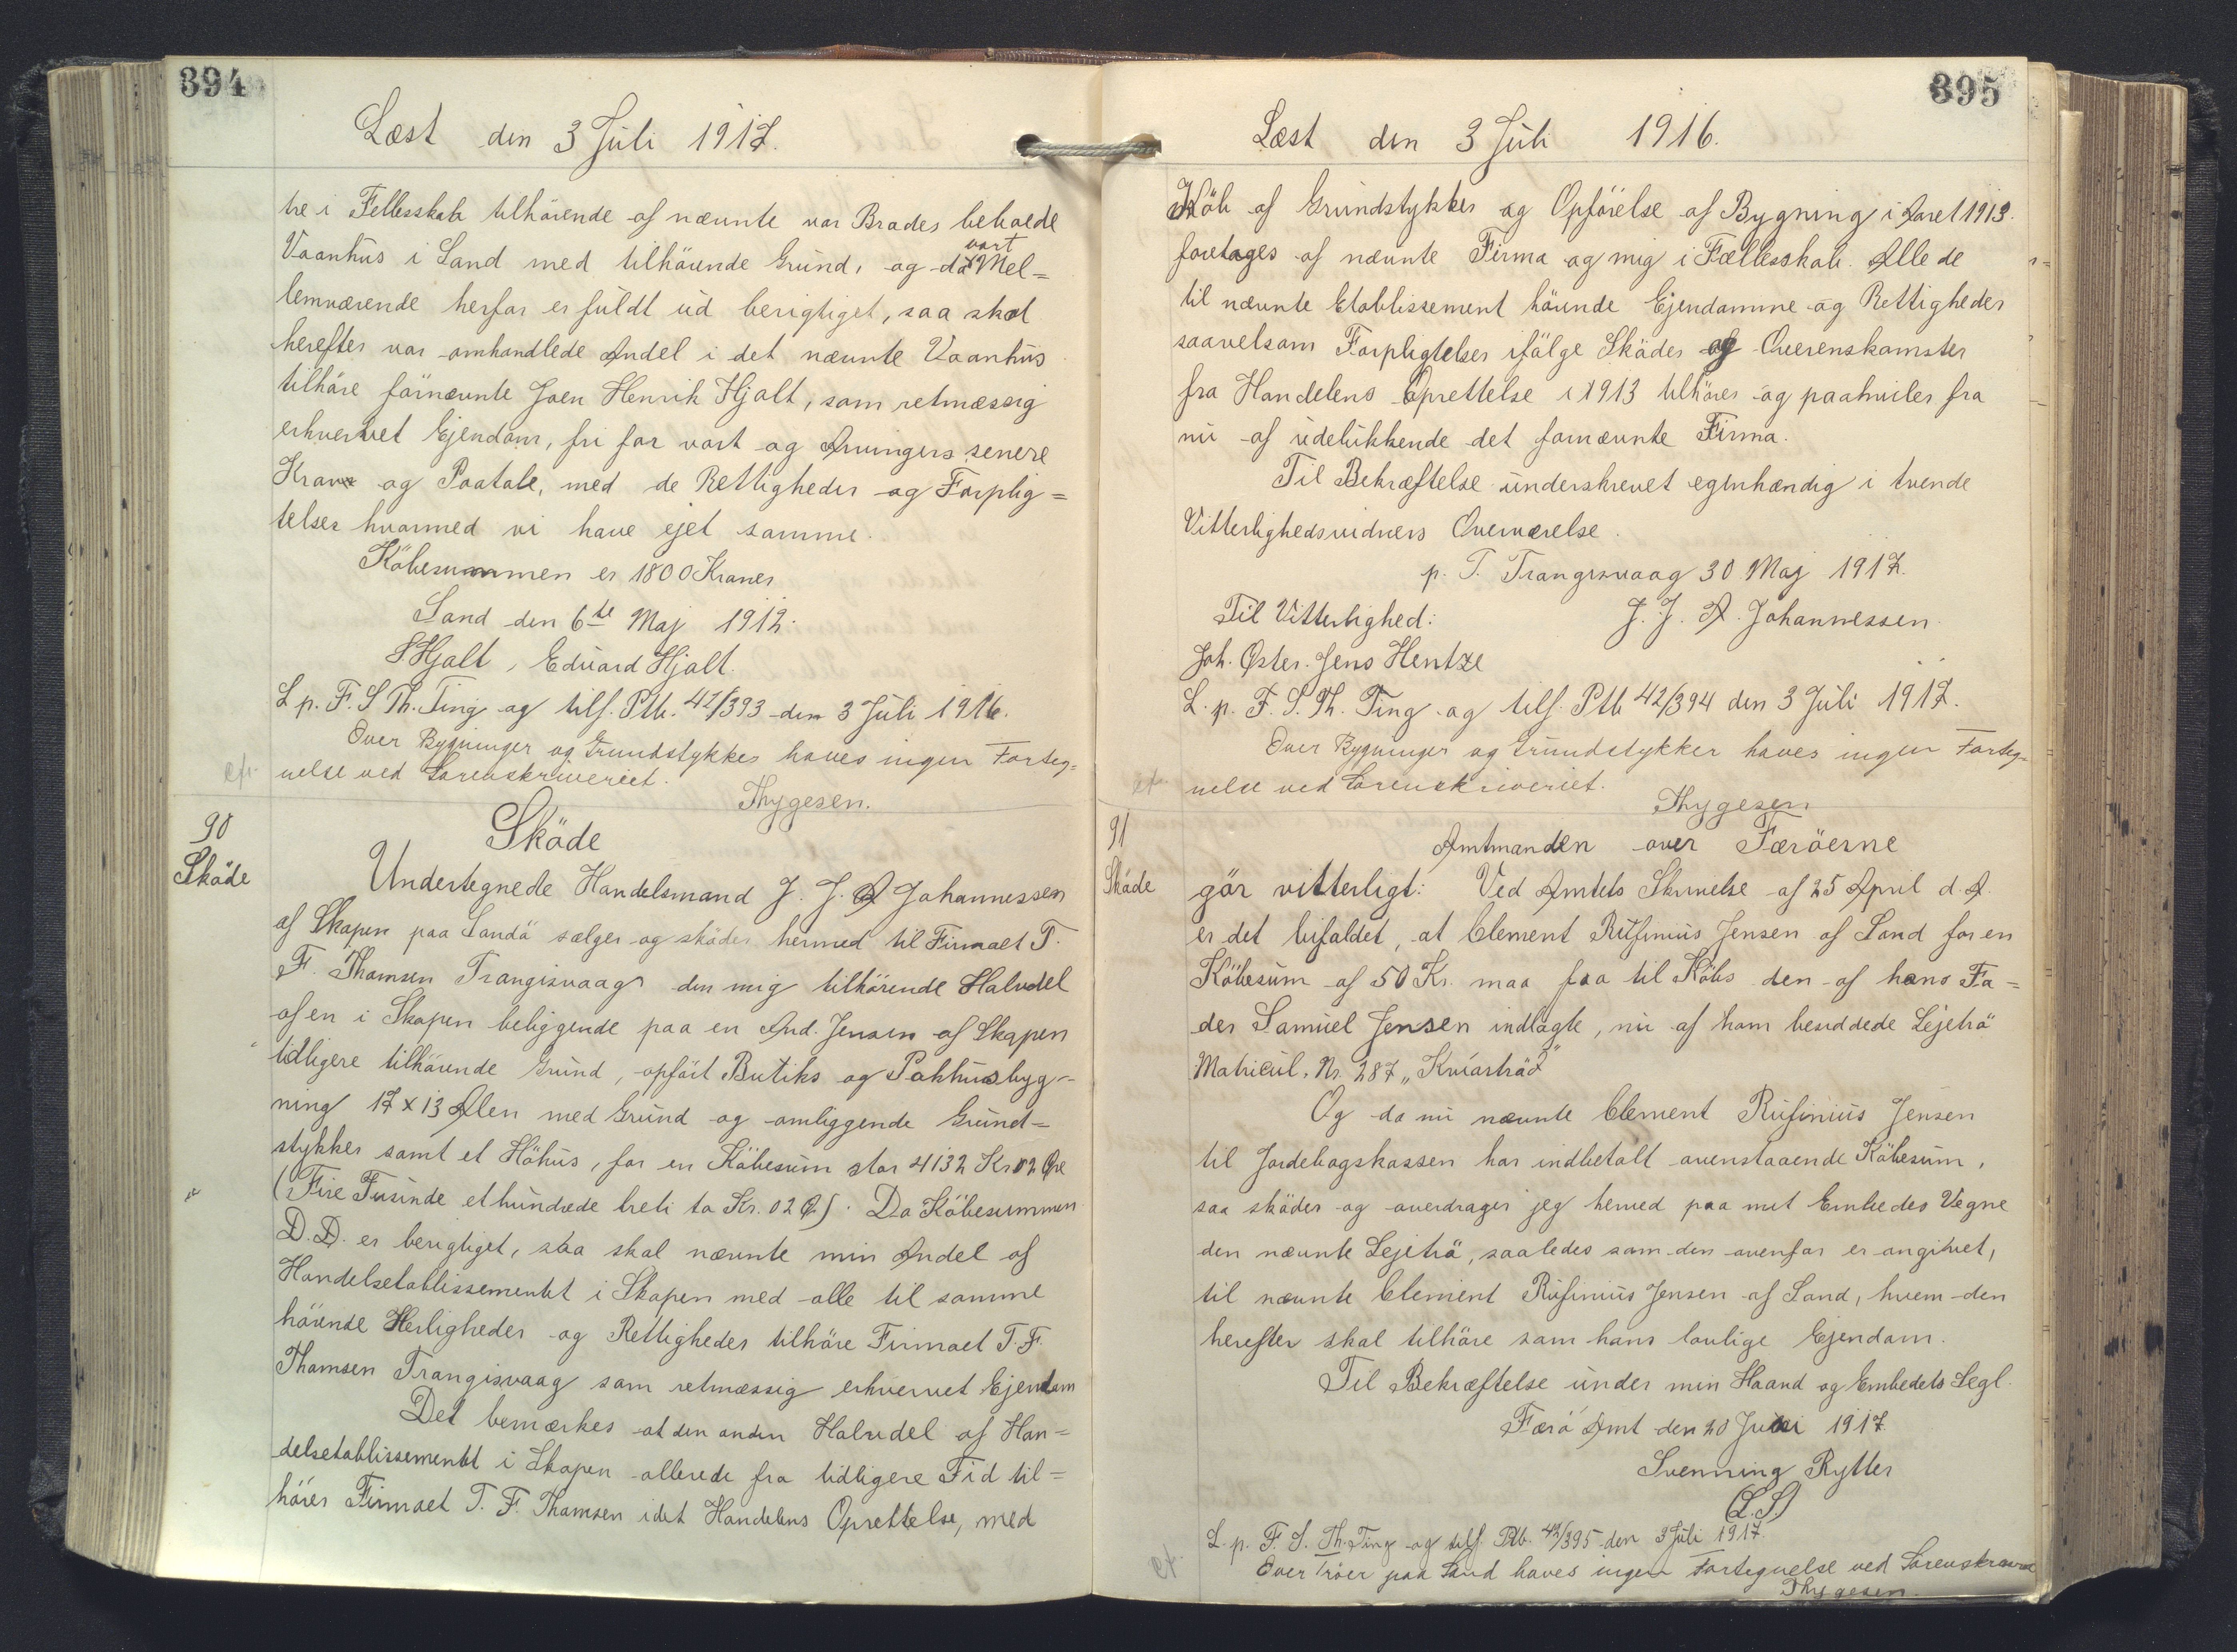 394
Læst den 3 Juli 1917.
tre i Fellesskab tilhörende af nævnte vor Broder beboede
Vaanhus i Sand med tilhörende Grund, og da vort Mel=
lemværende herfor er fuldt ud berigtiget, saa skal
herefter vor omhandlede Andel i det nævnte Vaanhus
tilhöre förnævnte Joen Henrik Hjalt, som retmæssig
erhvervet Ejendom, fri for vort og Arvingers senere
Krav og Paatale, med de Rettigheder og Forplig=
telser hvormed vi have ejet samme.
Köbesummen er 1800 Kroner
Sand den 6te Maj 1912.
SHjalt, Eduard Hjalt.
L. p. F. S. Th. Ting og tilf. Ptb. 42/393 den 3 Juli 1916.
Over Bygninger og Grundstykker haves ingen Forteg=
nelse ved Sorenskriveriet.
Thygesen.
90
Sköde
Sköde
Undertegnede Handelsmand J. J. A Johannessen
af Skapen paa Sandö sælger og sköder hermed til Firmaet T.
F. Thomsen Trangisvaag den mig tilhörende Halvdel
af en i Skapen beliggende paa en And. Jensen af Skapen
tidligere tilhörende Grund, opfört Butiks og Pakhusbyg=
ning 17 x 13 Alen med Grund og omliggende Grund=
stykker samt et Höhus, for en Köbesum stor 4132 Kr 02 Øre
(Fire Tusinde et hundrede treti to Kr. 02 Ø.). Da Köbesummen
D.D. er berigtiget, saa skal nævnte min Andel af
Handelsetablissementet i Skapen med alle til samme
hörende Herligheder og Rettigheder tilhöre Firmaet T. F.
Thomsen Trangisvaag som retmæssig erhvervet Ejendom
Det bemærkes at den anden Halvdel af Han=
delsetablissementet i Skapen allerede fra tidligere Tid til=
hörer Firmaet T. F. Thomsen idet Handelens Oprettelse, med
395
Læst den 3 Juli 1916.
Köb af Grundstykker og Opförelse af Bygning i Aaret 1913.
foretages af nævnte Firma og mig i Fællesskab. Alle de
til nævnte Etablissement hörende Ejendomme og Rettigheder
saavelsom Forpligtelser ifölge Sköder og Overenskomster
fra Handelens Oprettelse i 1913 tilhörer og paahviler fra
nu af udelukkende det fornævnte Firma.
Til Bekræftelse underskrevet egenhændig i tvende
Vitterlighedsvidners Overværelse.
p. T. Trangisvaag 30 Maj 1917.
Til Vitterlighed: J. J. A. Johannessen.
Joh. Øster. Jens Hentze
L. p. F. S. Th. Ting og tilf. Ptb 42/394 den 3 Juli 1917.
Over Bygninger og Grundstykker haves ingen Forteg=
nelse ved Sorenskriveriet.
Thygesen
91
Sköde
Amtmanden over Færöerne
gör vitterligt: Ved Amtets Skrivelse af 25 April d. A.
er det bifaldet, at Clement Rufinius Jensen af Sand for en
Köbesum af 50 Kr. maa faa til Köbs den af hans Fa=
der Samuel Jensen indlagte, nu af ham besiddede Lejetrö
Matricul. Nr. 287 „Kviartröð"
Og da nu nævnte Clement Rufinius Jensen
til Jordebogskassen har indbetalt ovenstaaende Köbesum,
saa sköder og overdrager jeg herved paa mit Embedes Vegne
den nævnte Lejetrö, saaledes som den ovenfor er angivet,
til nævnte Clement Rufinius Jensen af Sand, hvem den
herefter skal tilhöre som hans lovlige Ejendom.
Til Bekræftelse under min Haand og Embedets Segl.
Færö Amt den 20 Juni 1917
Svenning Rytter
(L.S.)
L. p. F. S. Th. Ting og tilf. Ptb. 42/395 den 3 Juli 1917.
Over Tröer paa Sand haves ingen Fortegnelse ved
Thygesen.